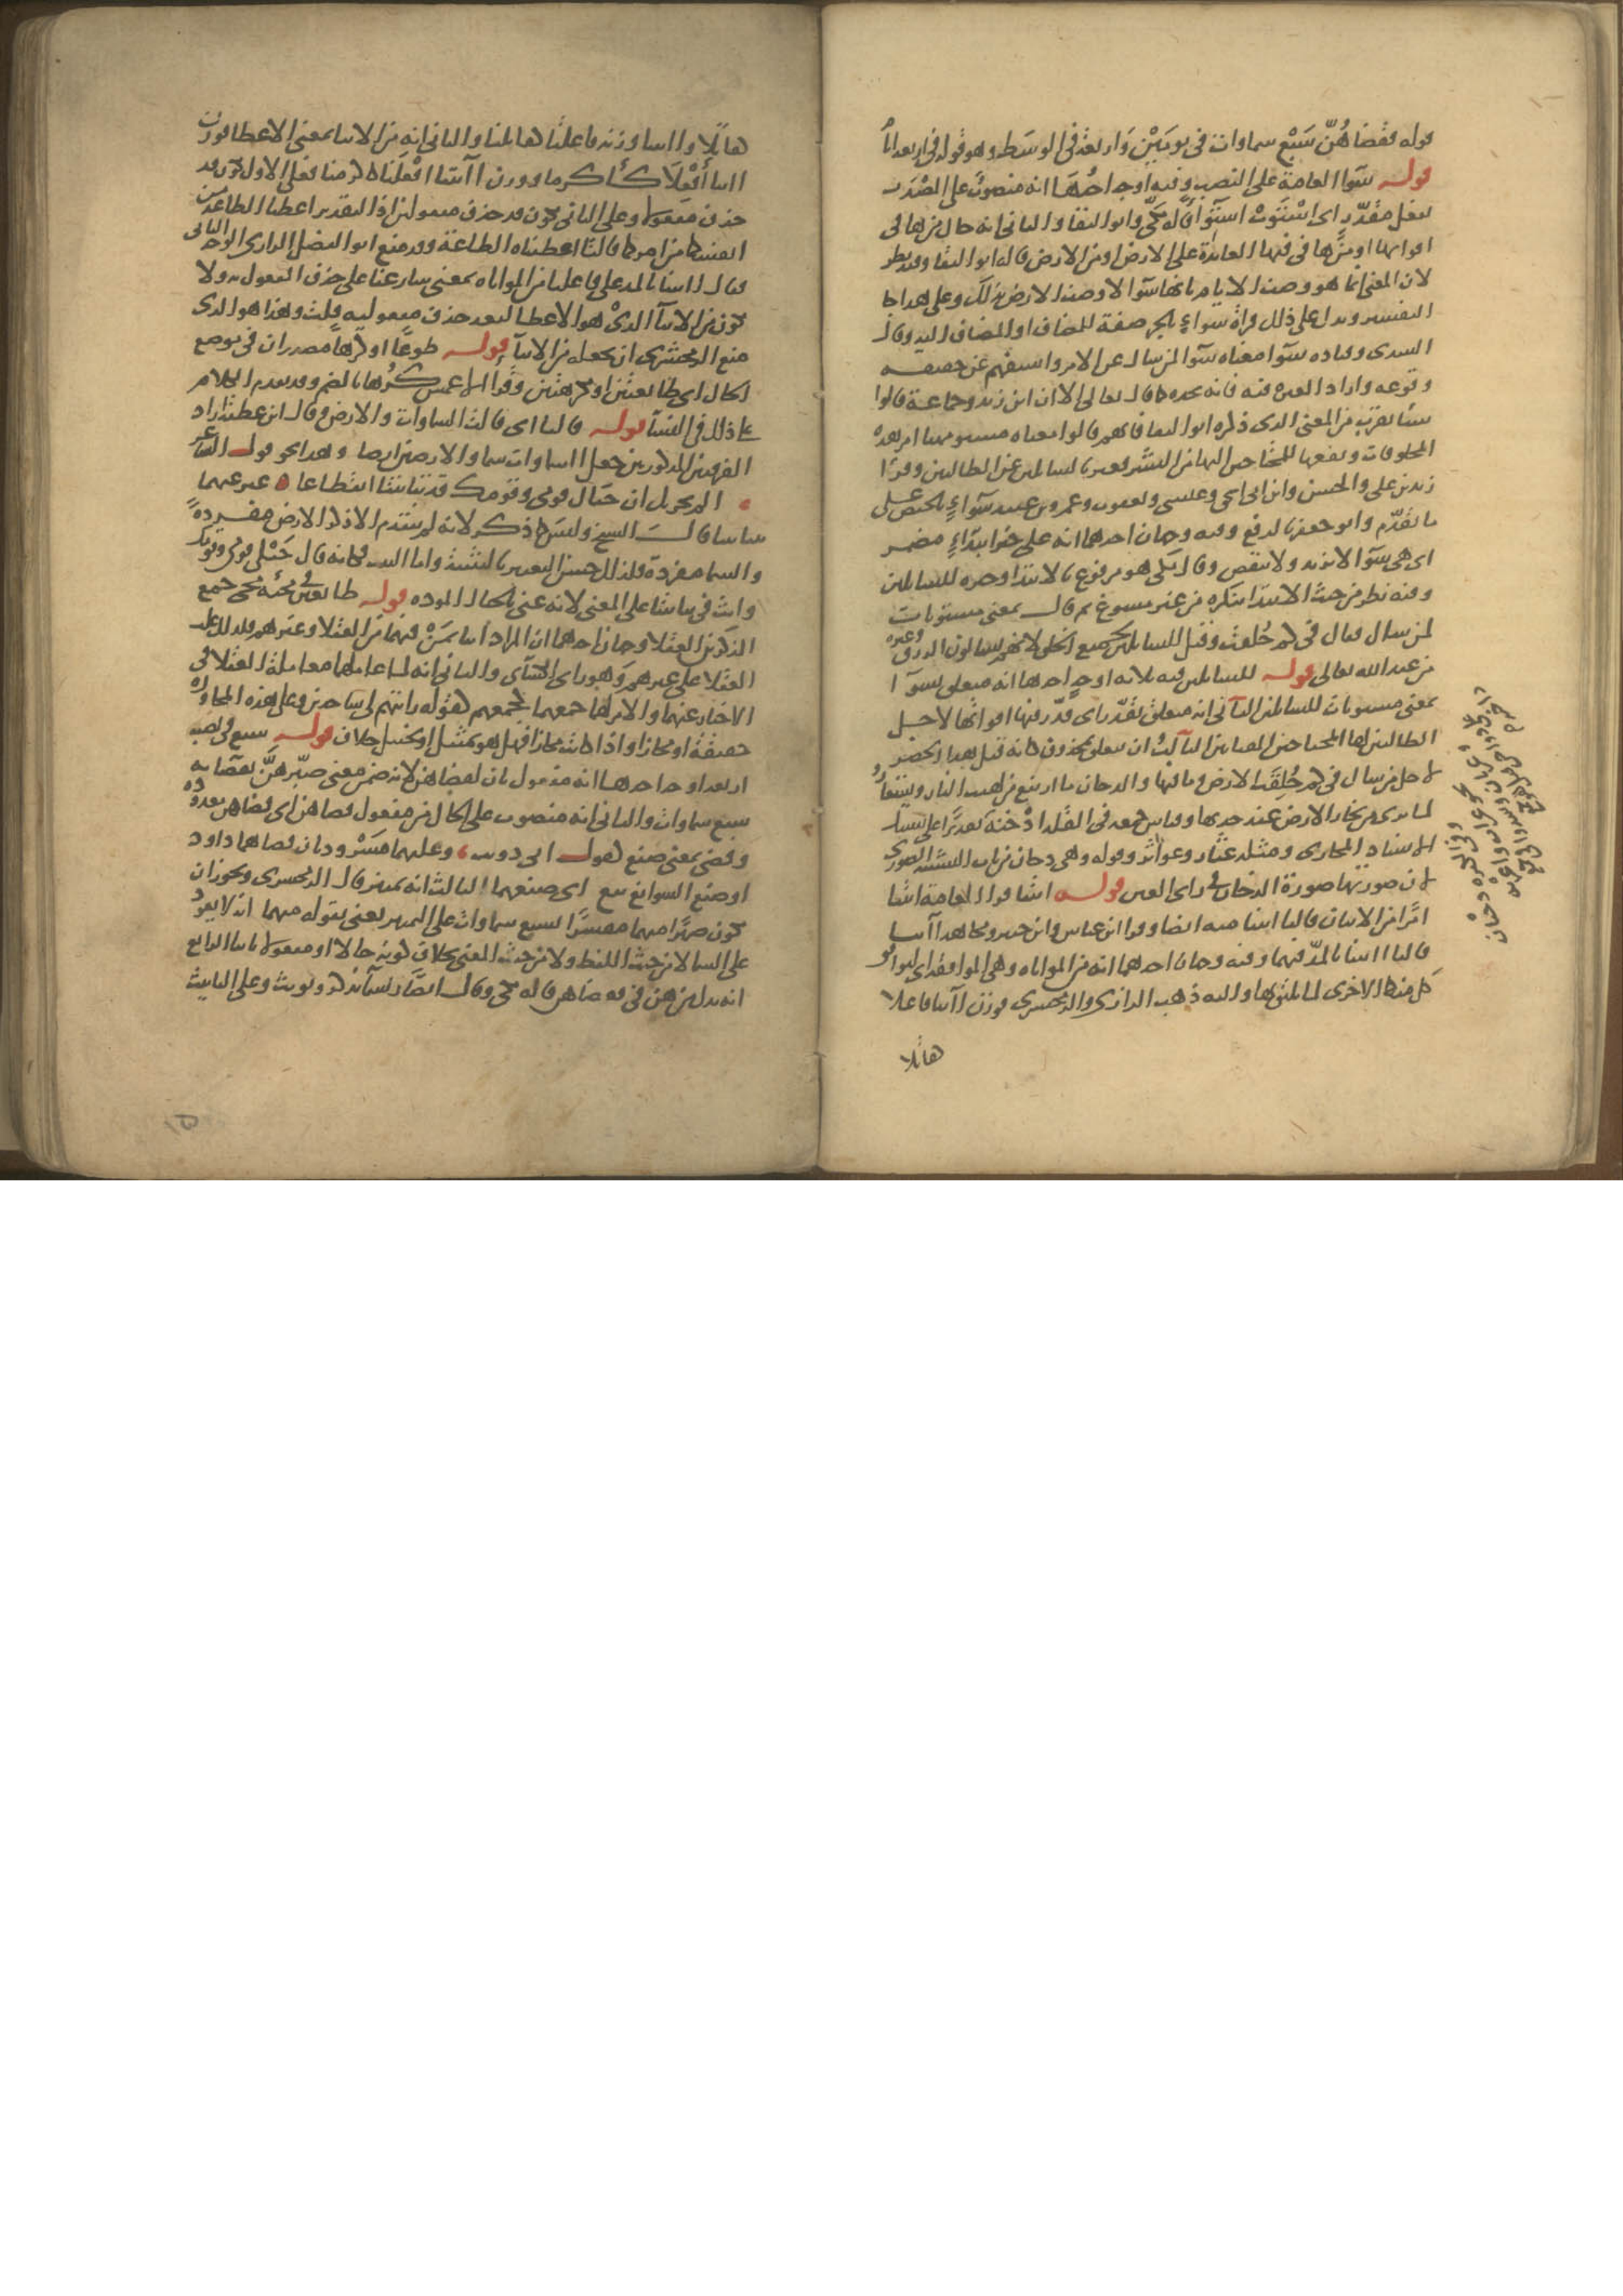 قوله فقضاهُنّ سَبْع سماوات في يومَيْن وَاربعة في الوسَط وهو قوله في اربعة ايام
قوله سَوا العامة على النصب وفيه اوجه احدُهَا انه منصوبٌ على المصْدَر
بفعل مقدّر اى استَوَتْ استِوَاءً قاله مكّى وابو البقا والثانى انه حال من ها فى
اقواتها او من ها فى فيها العائدة على الارض او من الارض قاله ابو البقا وفيه نظر
لان المعنى انما هو وصف الايام بانها سوآ لا وصف الارض بذلك وعلى هذا جا
التفسير ويدل على ذلك قراة سواءٍ بالجر صفة للمضاف او للمضاف اليه وقال
السدى وقتاده سَوآ معناه سَوآ لمن سال عن الامر واستفهم عن حقيقه
وقوعه واراد العبرة فيه فانه يجده كما قال تعالى الا ان ابن زيد وجماعة قالوا
شيئا يقرب من المعنى الذى ذكره ابو البقا فانهم قالوا معناه مستو مهيا امر هذه
المخلوقات ونفعها للمحتاجين اليها من البشر فعبر بالسائلين عن الطالبين وقرا
زيد بن على والحسن وابن ابى اسحق وعيسى ويعقوب وعمرو بن عبيد سَوآءٍ بالخفض على
ما تقدّم وابو جعفر بالرفع وفيه وجهان احدهما انه على خبر ابتداءٍ مضمر
اى هى سَوآ لا تزيد ولا تنقص وقال مكى هو مرفوع بالابتدا وخبره للسائلين
وفيه نظر من حيث الابتدا بنكره من غير مسوغ ثم قال بمعنى مستويات
لمن سال فقال فى كم خُلقت وقيل للسائلين لجميع الخلق لانهم يسالون الرزق وغيره
من عند الله تعالى قوله للسائلين فيه ثلاثه اوجه احدها انه متعلق بسوآ
بمعنى مستويات للسائلين الثآنى انه متعلق بقدّر اى قدّر فيها اقواتها لاجل
الطالبين لها المحتاجين المقتاتين الثآلث ان يتعلق بمحذوف كانه قيل هذا الحصر
لاجل من سال فى كم خُلِقَت الارض وما فيها والدخان ما ارتفع من لهب النار ويستعار
لما يرى من بخار الارض عند جدبها وقياس جمعه فى القلة ادْخنة
الاسناد المجازى ومثله عثان وعواثن وقوله وهى دخان من باب التشبيه الصورى
لان صورتها صورة الدخان فى راى العين قوله ائتيا قرا العامة ائتيا
امرًا من الاتيان قالتا اتينا منه ايضا وقرا ابن عباس وابن جبير ومجاهد آتيا
قالتا آتينا بالمدّ فيهما وفيه وجهان احدهما انه من المواتاه وهى الموافقة اى لتوافق
كل منكما الاخرى لما يليق بها واليه ذهب الرازى والزمخشرى فوزن آتيا فاعلا
هاتلا
هاتلا وآتينا وزنه فاعلنا والثانى انه من الايتا بمعنى الاعطا فوزن
آتيا أَفْعِلَا كأكرما ووزن آتينا افْعَلنا كاكرمنا فعلى الاول يكون قد
حذف مفعولا وعلى الثانى يكون قد حذف مفعولين اذ التقدير اعطيا الطاعة من
انفسكما من امركما قالتا اعطيناه الطاعة وقد منع ابو الفضل الرازى الوجه الثانى
فقال آتينا بالمد على فاعلنا من المواتاه بمعنى سارعنا على حذف المفعول به ولا
تكون من الايتآ الذىْ هو الاعطا لبعد حذف مفعوليه قلت وهذا هو الذى
منع الزمخشرى ان يجعله من الايتآ قوله طوعًا او كرْها مصدران فى موضع
الحال اى طايعتين او مكرهتين وقرا الاعمش كُرْها بالضم وقد تقدم الكلام
على ذلك فى النسآ قوله قالتا اى قالت السماوات والارض وقال ابن عطية اراد
الفرقتين المذكورتين جعل السماوات سماء والارضين ارضا وهذا نحو قول الشاعر
الم يحزنك ان حبال قومى وقومك قد تباينتا انقطاعا عبر عنهما
بتباينتا قال الشيخ وليسَ كما ذكر لانه لم يتقدم الا ذكر الارض مفردةً
والسما مفردَةً فلذلك حسن التعبير بالتثنية واما البيت فكانه قال حَبْلى قومى وقومك
وانث فى تباينتا على المعنى لانه عنى بالحبال المودّه قوله طايعين فى مجيئه مجى جمع
المذكرين العقلا وجهان احدهما ان المراد اتينا بمَنْ فيهما من العقلا وغيرهم فلذلك غلب
العقلا على غيرهم وَهو راى الكسآى والثانى انه لما عاملهما معاملة العقلا فى
الاخبار عنهما والامر لهما جمعهما كجمعهم لقوله رايتهم لى ساجدين وعلى هذه المحاوره
حقيقة او مجازا واذا كانت مجازا فهل هو تمثيل او تخييل خلاف قوله سبع فى نصبه
اربعة اوجه احدهما انه مفعول ثان لقضاهن لانه ضمن معنى صيّرهنَّ بقضآئه
سبع سماوات والثانى انه منصوب على الحال من مفعول فقضاهن اى قضاهن معدوده
وقضى بمعنى صنع لقول ابى ذويب وعليهما مَسْرودتان قضاهما داود
او صنع السوابغ تبع اى صنعهما الثالث انه تمييز قال الزمخشرى ويجوز ان
يكون ضميرًا مبهما مفسَّرًا بسبع سماوات على التمييز يعنى بقوله مبهما انه لا يعود
على السما لا من حيث اللفظ ولا من حيث المعنى بخلاف كونه حالا او مفعولا ثانيا الرابع
انه بدل من هن فى فقضاهن قاله مكى وقال ايضًا السمآ تذكر وتونث وعلى التانيث